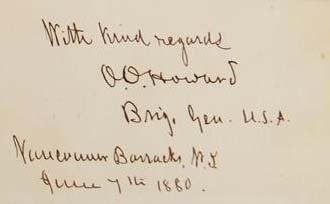 With kind regards
O.O. Howard
Brig. Gen. U.S.A.
Vancouver Barracks, W.T.
June 7th 1880.